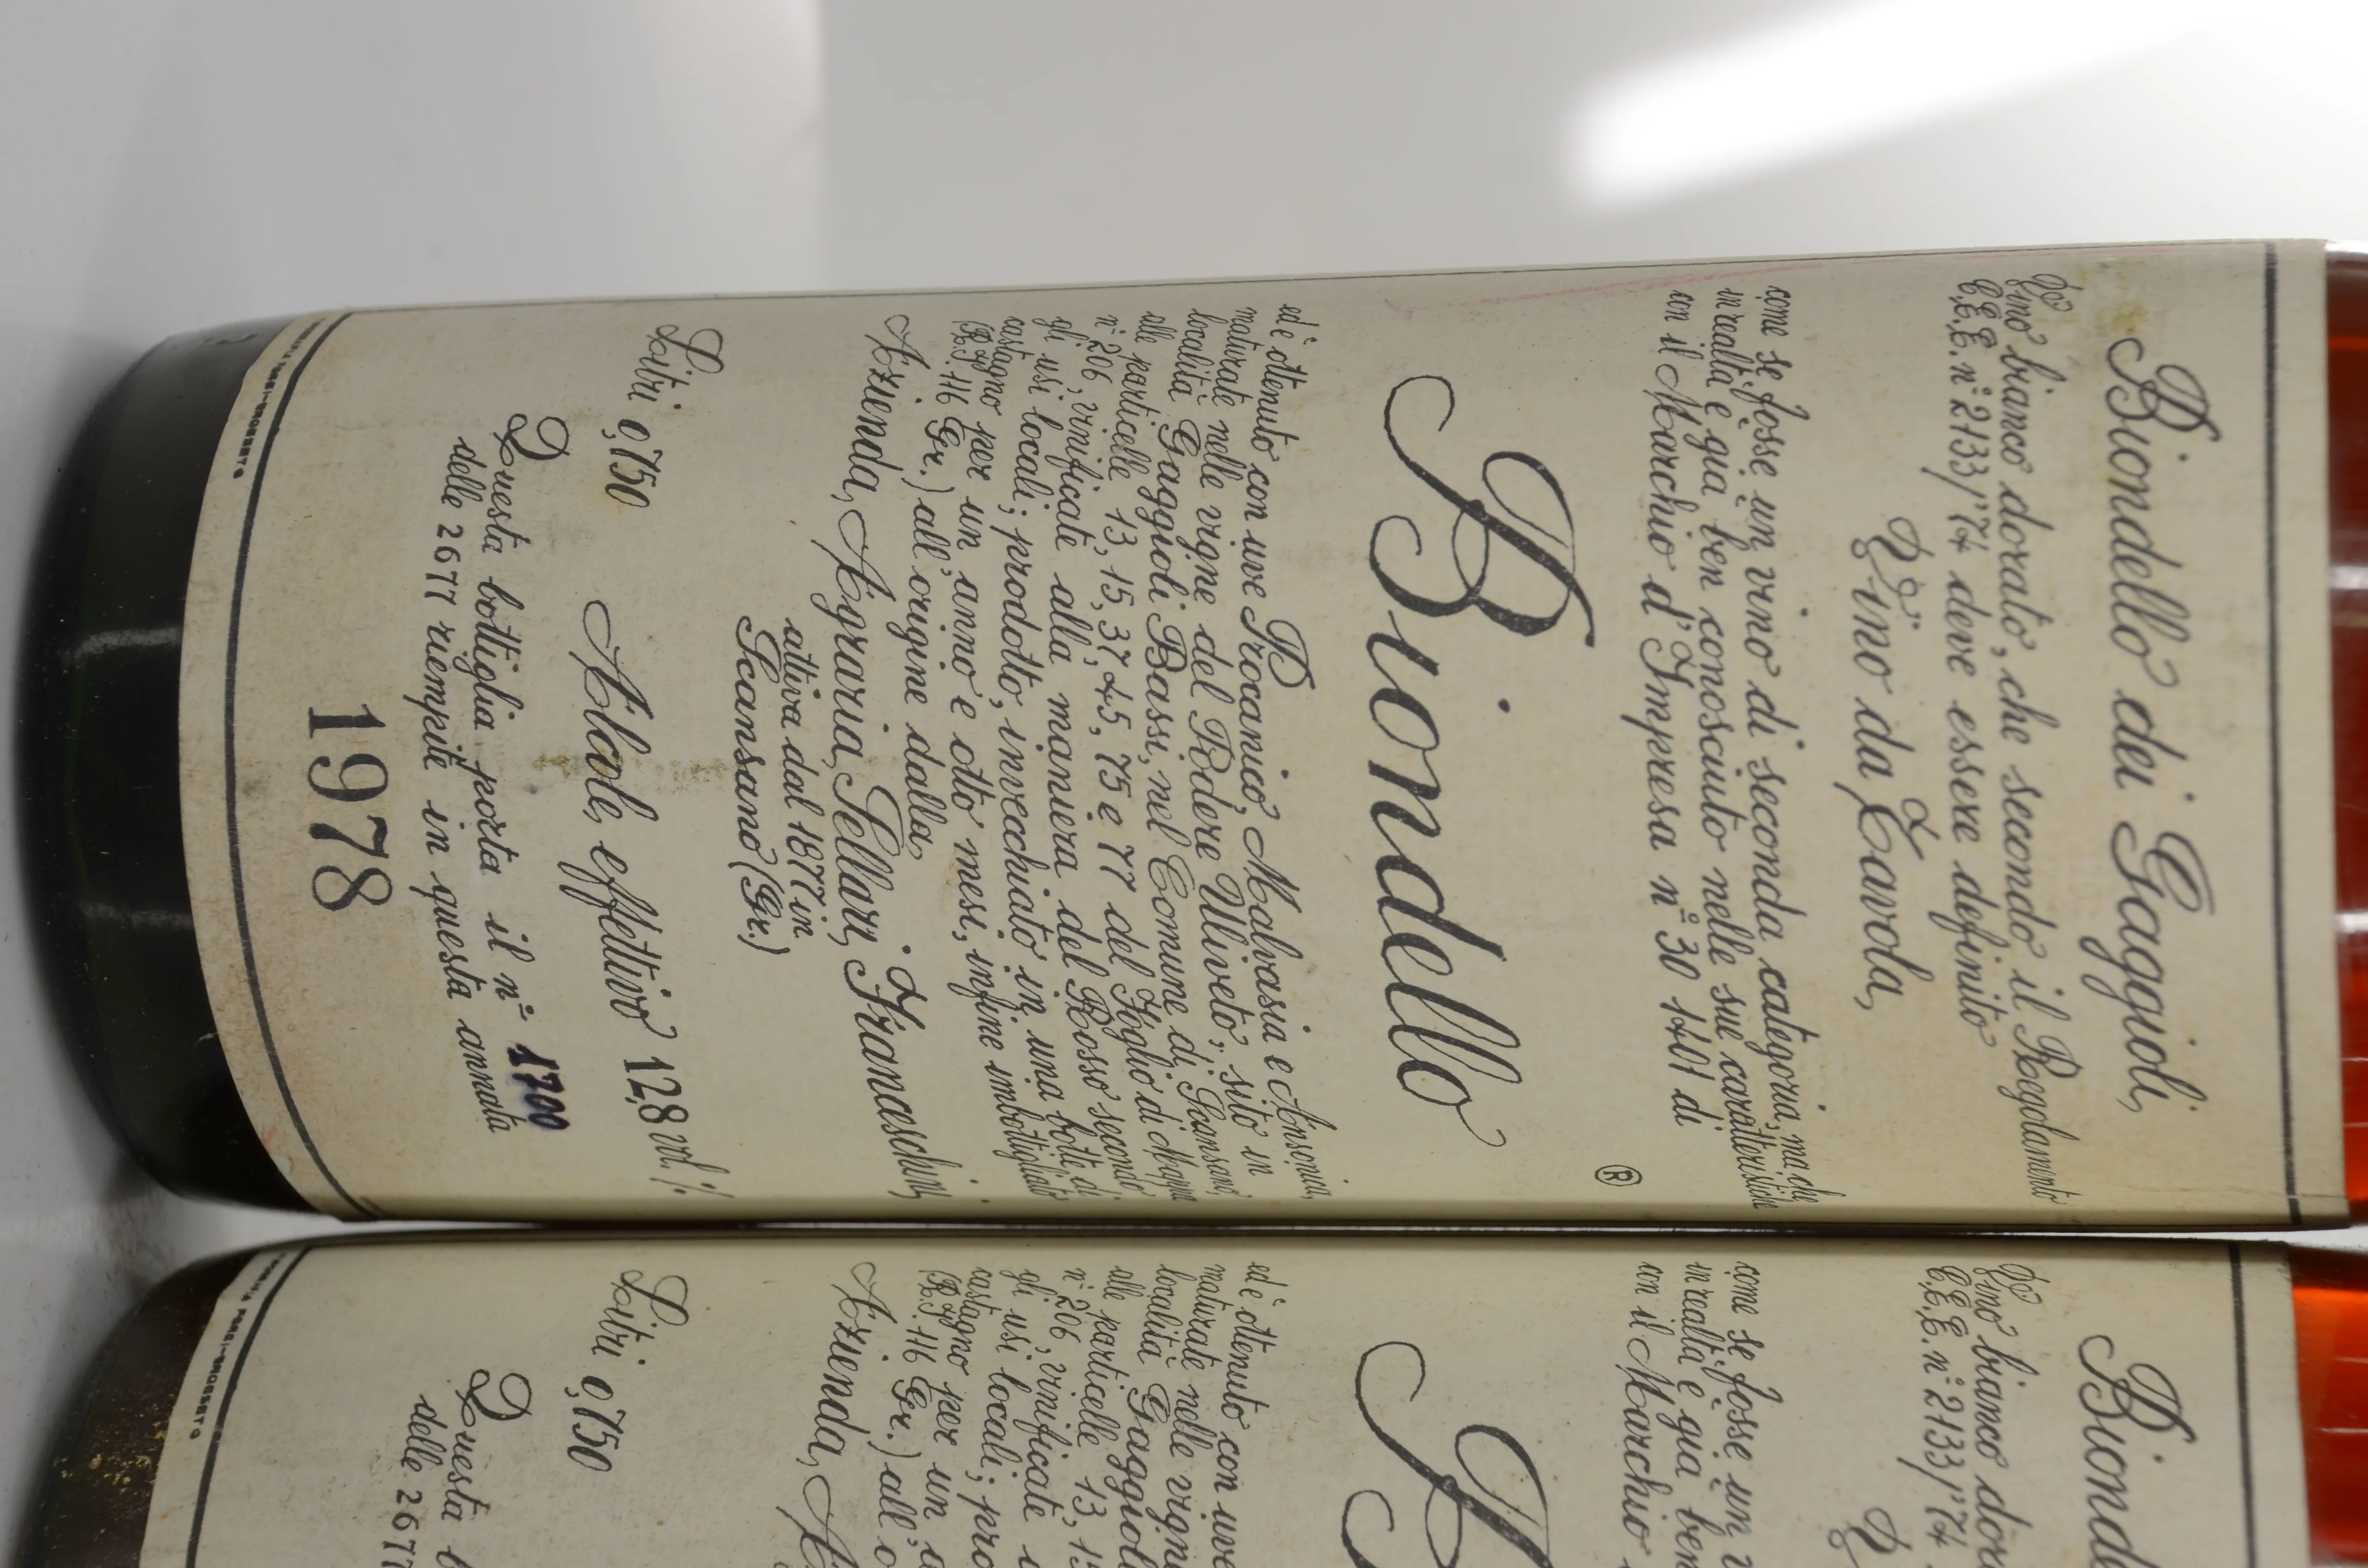 Biondello dei Gaggioli,
Vino bianco dorato, che secondo il Regolamento
C.E.E. n° 2133/'74 deve essere definito
Vino da Tavola,
come se fosse un vino di seconda categoria, ma che
in realtà è già ben conosciuto nelle sue caratteristiche
con il Marchio d'Impresa n° 301401 di
Biondello ®
ed è ottenuto con uve Procanico, Malvasia e Ansonica,
maturate nelle vigne del Podere Uliveto, sito in
località Gaggioli Bassi, nel Comune di Scansano,
alle particelle 13, 15, 37, 45, 75 e 77 del Foglio di Mappa
n° 206, vinificate alla maniera del Rosso secondo
gli usi locali; prodotto, invecchiato in una botte di
castagno per un anno e otto mesi, infine imbottigliato
116 Gr.) all'origine dalla
Azienda Agraria Sellari Franceschini,
attiva dal 1877 in
Scansano (Gr.)
Litri 0,750 Alcole effettivo 12,8 vol. %
Questa bottiglia porta il n° 1700
delle 2677 riempite in questa annata
1978
GROSSETO
Biond
Vino bianco dor
C.E.E. n° 2133/'74
V
come se fosse un v
in realtà è già ben
con il Marchio
B
ed è ottenuto con uve
maturate nelle vign
località Gaggioli
alle particelle 13, 15
n° 206, vinificate
gli usi locali; pro
castagno per un a
116 Gr.) all'o
Azienda A
Litri 0,750
Questa b
delle 2677
GROSSETO